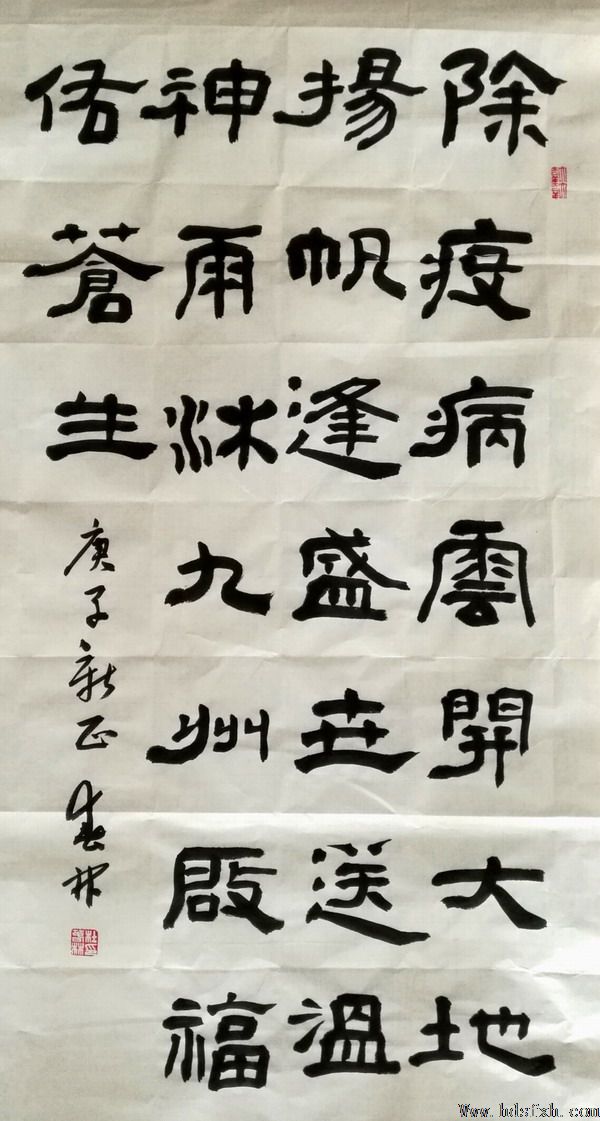 除疫病雲開大地
揚帆逢盛世送溫
神雨沐九州啟福
佑蒼生
庚子新正 春林
Www.hdsfxh.com